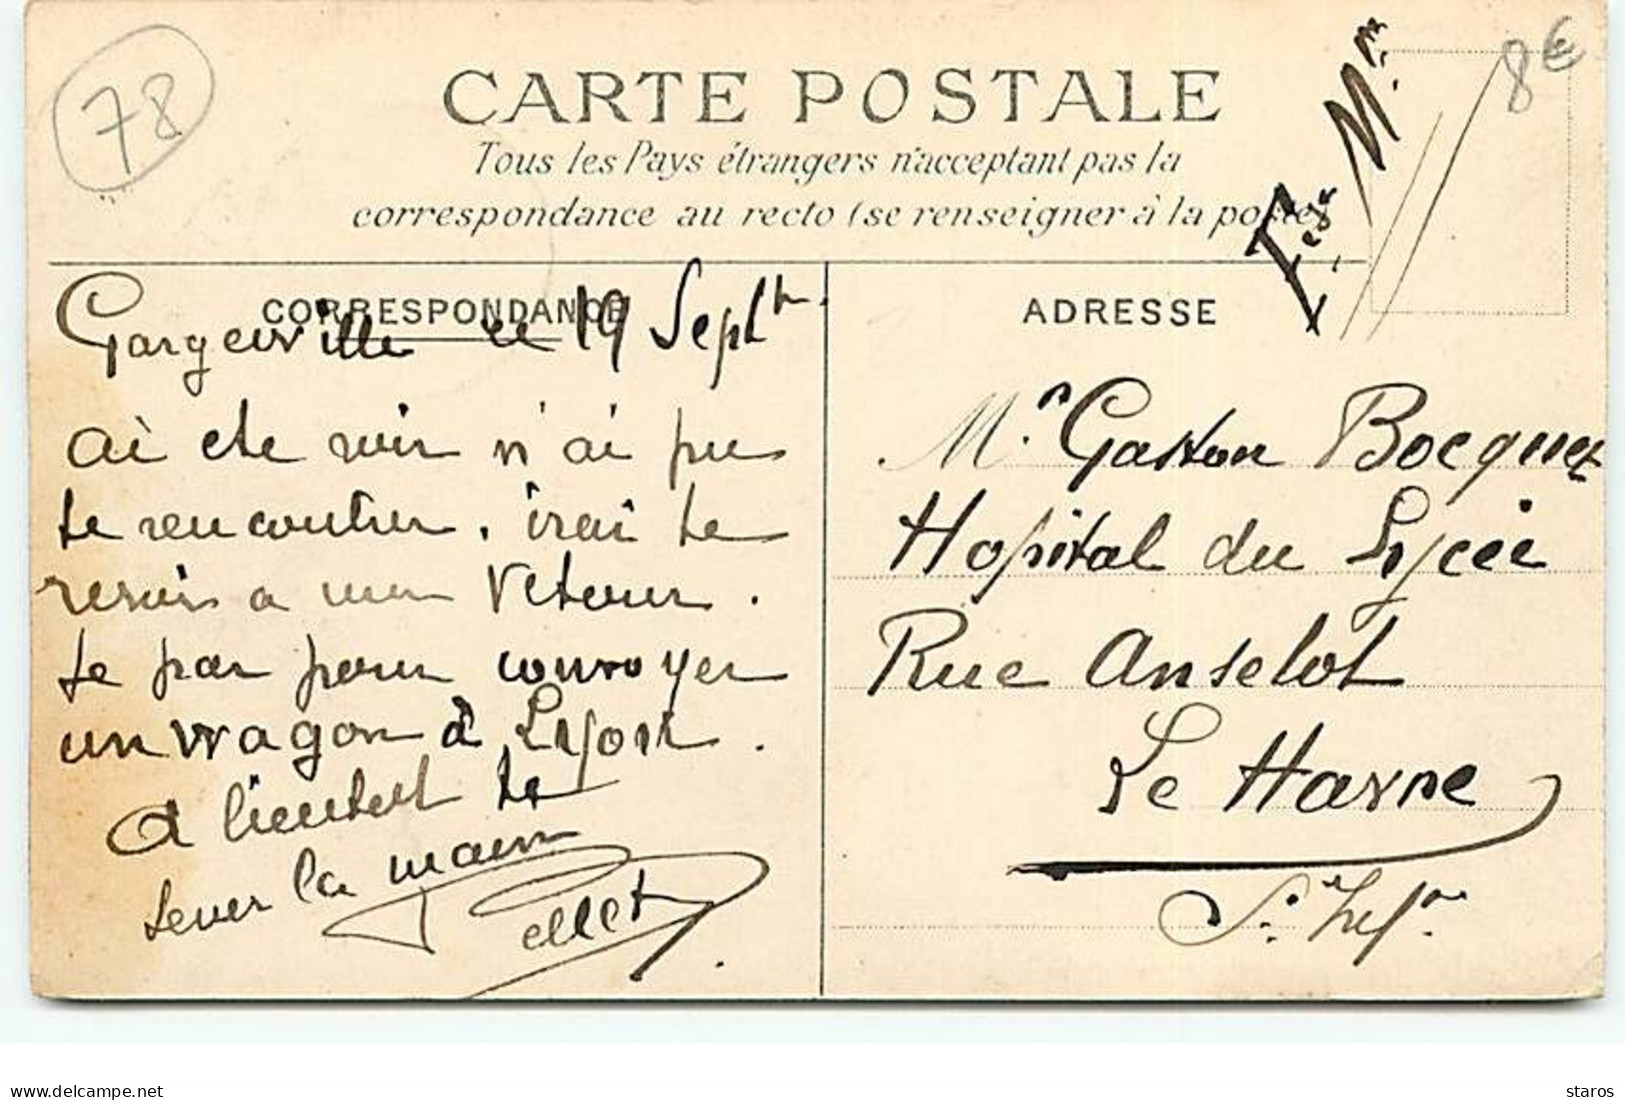 78
8€
CARTE POSTALE
Tous les Pays étrangers n'acceptant pas la
correspondance au recto (se renseigner à la poste)
Fse Mre
CORRESPONDANCE
ADRESSE
Gargenville le 19 Sept
ai ete voir n'ai pu
te rencontrer. irai te
revoir a mon retour.
te par pour convoyer
un wagon à Lyon.
A lientot te
serer la main
Pellet
Mr. Gaston Bocquet
Hopital du Lycée
Rue Anselot
Le Havre
S. Infre
www.delcampe.net
staros